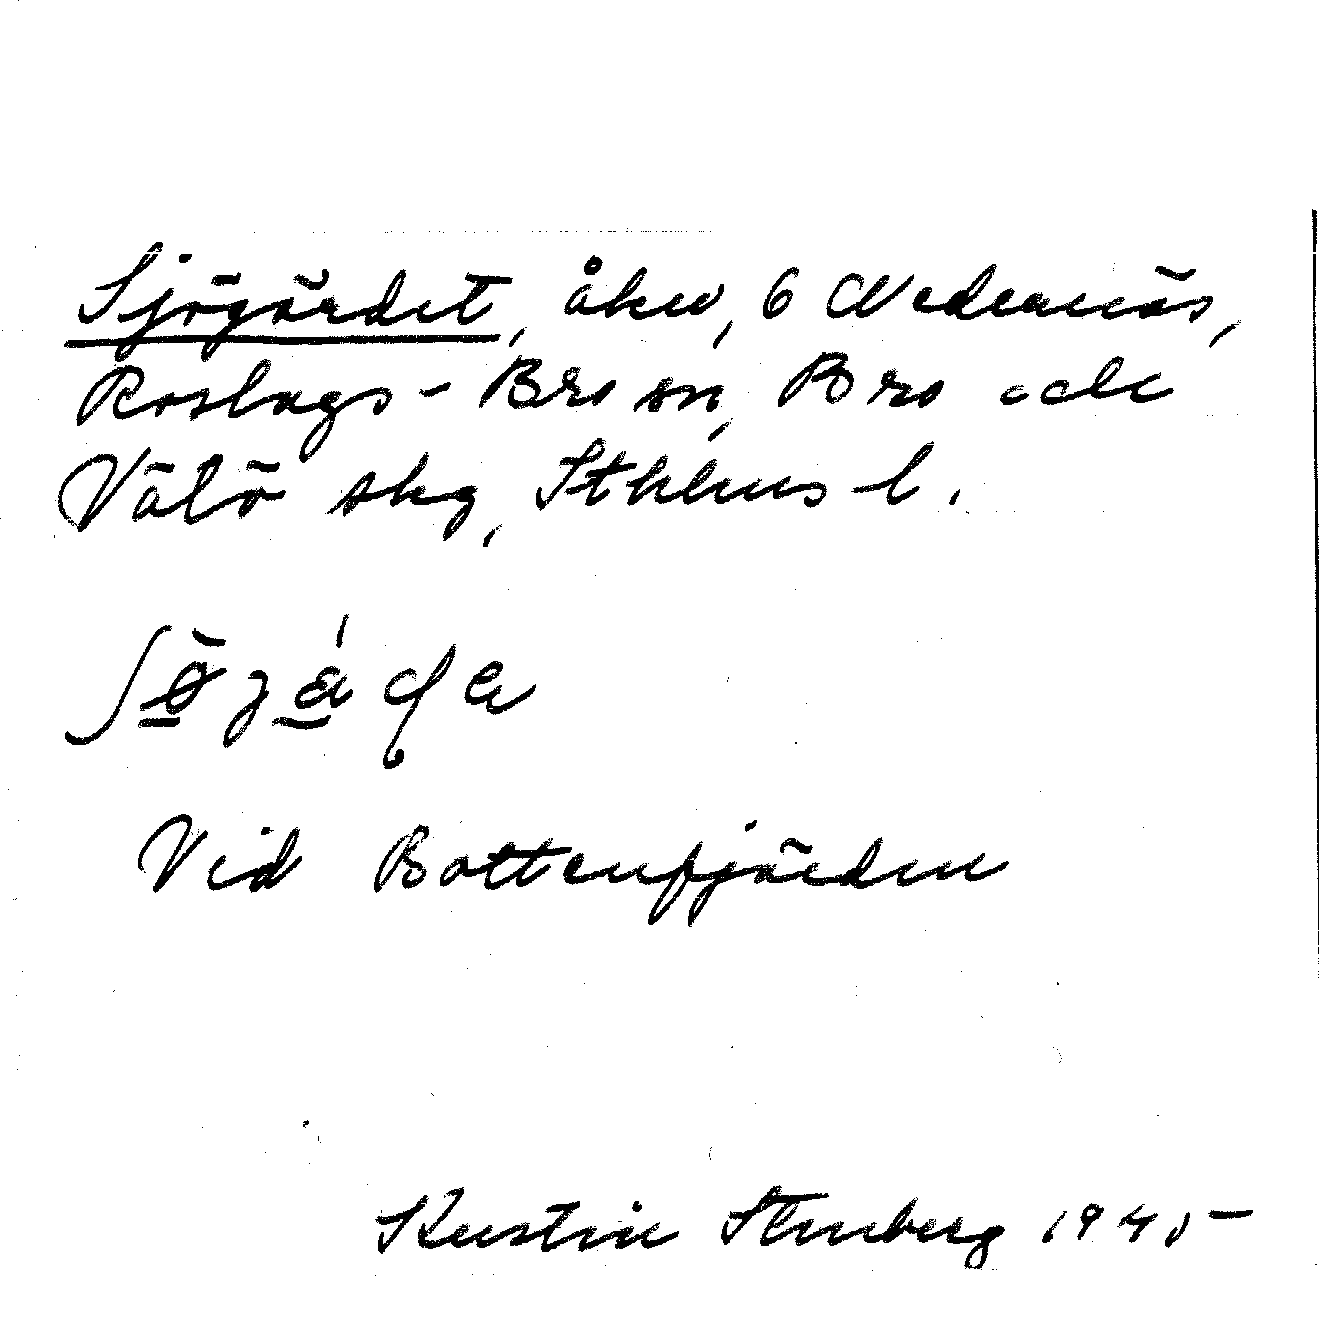 Sjögärdet, åker, 6 Nedernäs,
Roslags-Bro sn, Bro och
Vätö skg, Sthlms l.
Vid Bottenfjärden
Kerstin Stenberg 1945